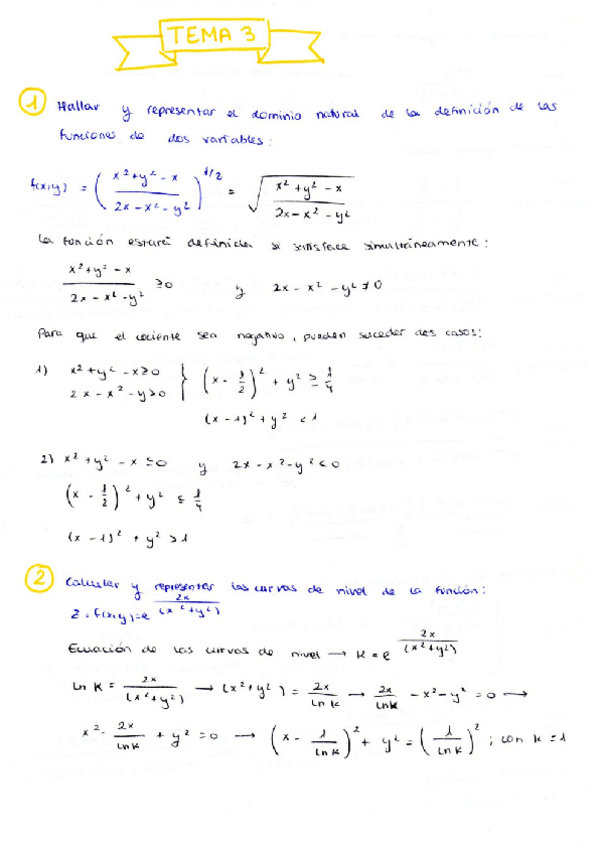 TEMA 3
1 Hallar y representar el dominio natural de la definición de las
funciones de dos variables:
f(x,y) = ( (x² + y² - x) / (2x - x² - y²) )^1/2 = √( (x² + y² - x) / (2x - x² - y²) )
La función estará definida si satisface simultáneamente:
(x² + y² - x) / (2x - x² - y²) ≥ 0 y 2x - x² - y² ≠ 0
Para que el cociente sea negativo, pueden suceder dos casos:
1) x² + y² - x ≥ 0
2x - x² - y > 0 } (x - 1/2)² + y² ≥ 1/4
(x - 1)² + y² < 1
2) x² + y² - x ≤ 0 y 2x - x² - y² < 0
(x - 1/2)² + y² ≤ 1/4
(x - 1)² + y² > 1
2 Calcular y representar las curvas de nivel de la función:
z = f(x,y) = e^(2x / (x² + y²))
Ecuación de las curvas de nivel → K = e^(2x / (x² + y²))
ln K = 2x / (x² + y²) → (x² + y²) = 2x / ln K → 2x / ln K - x² - y² = 0 →
x² - 2x / ln K + y² = 0 → (x - 1 / ln K)² + y² = (1 / ln K)² ; con K = 1